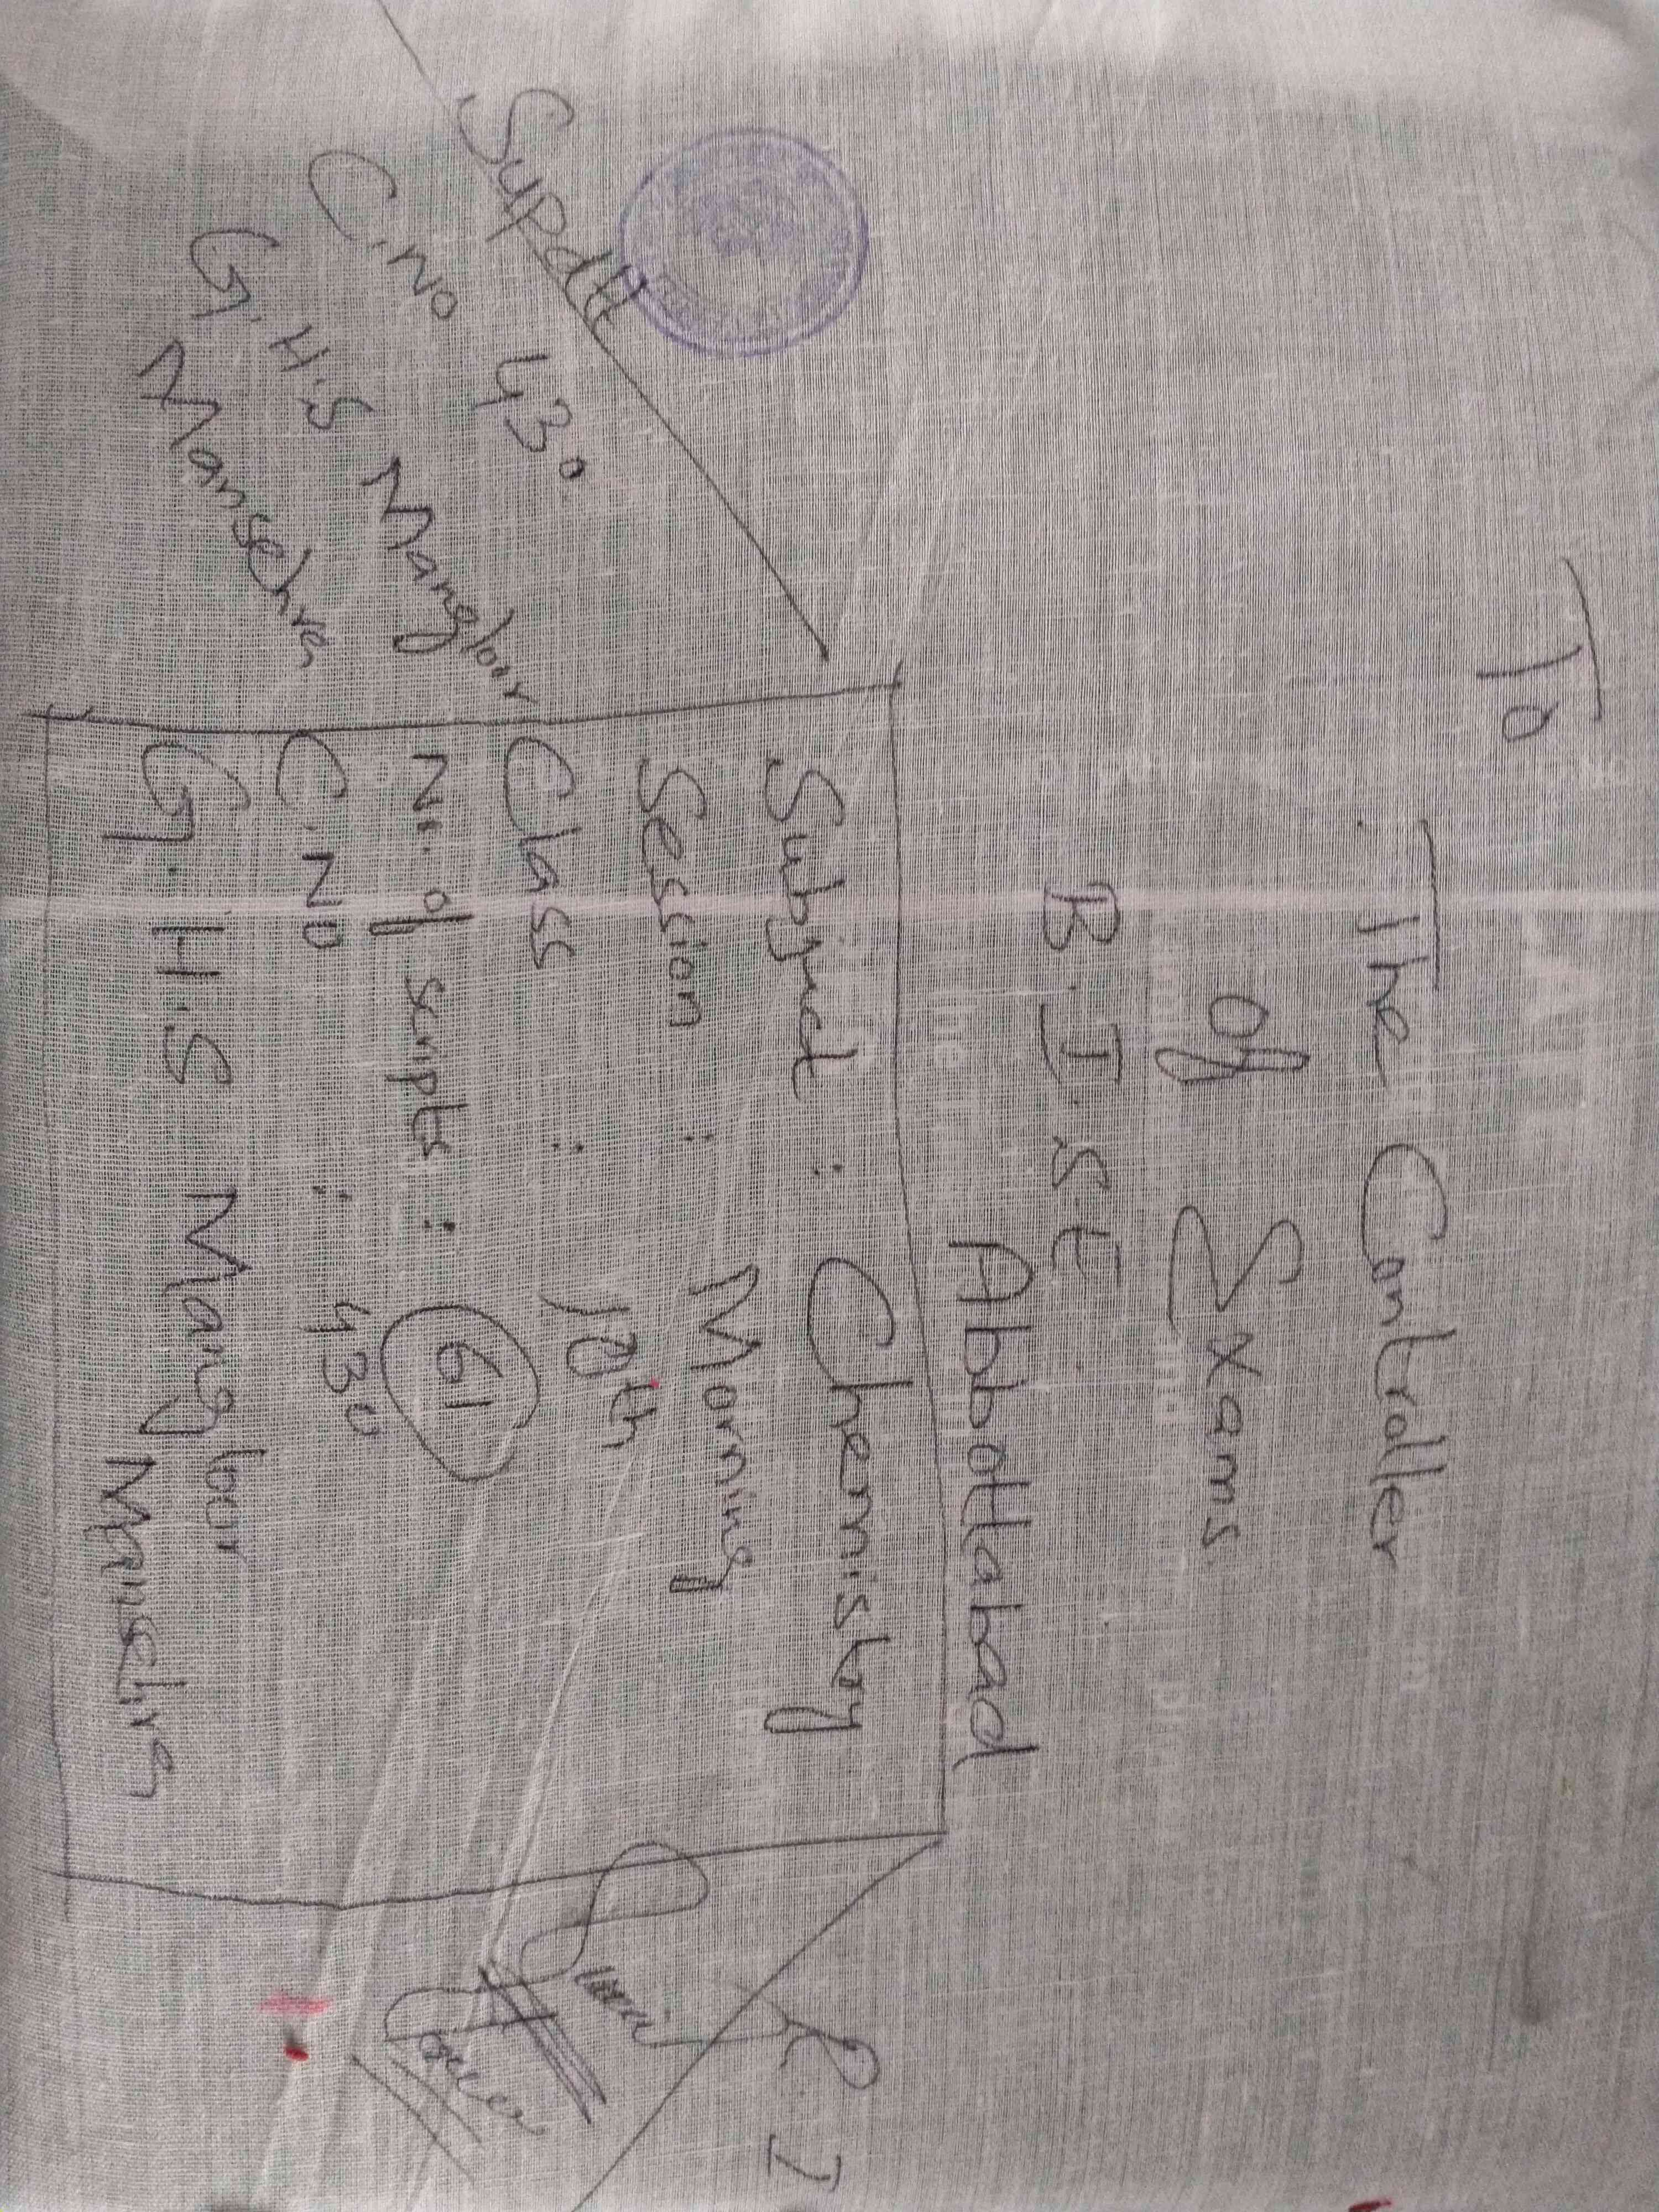 To
The Controller
of Exams
B.I.S.E
Abbottabad
Subject : Chemistry
Session : Morning
Class : 10th
No. of scripts : 61
C.NO : 430
G.H.S Mangloor
Mansehra
Supdtt
C.No 430
G.H.S Mangloor
Mansehra
R.I